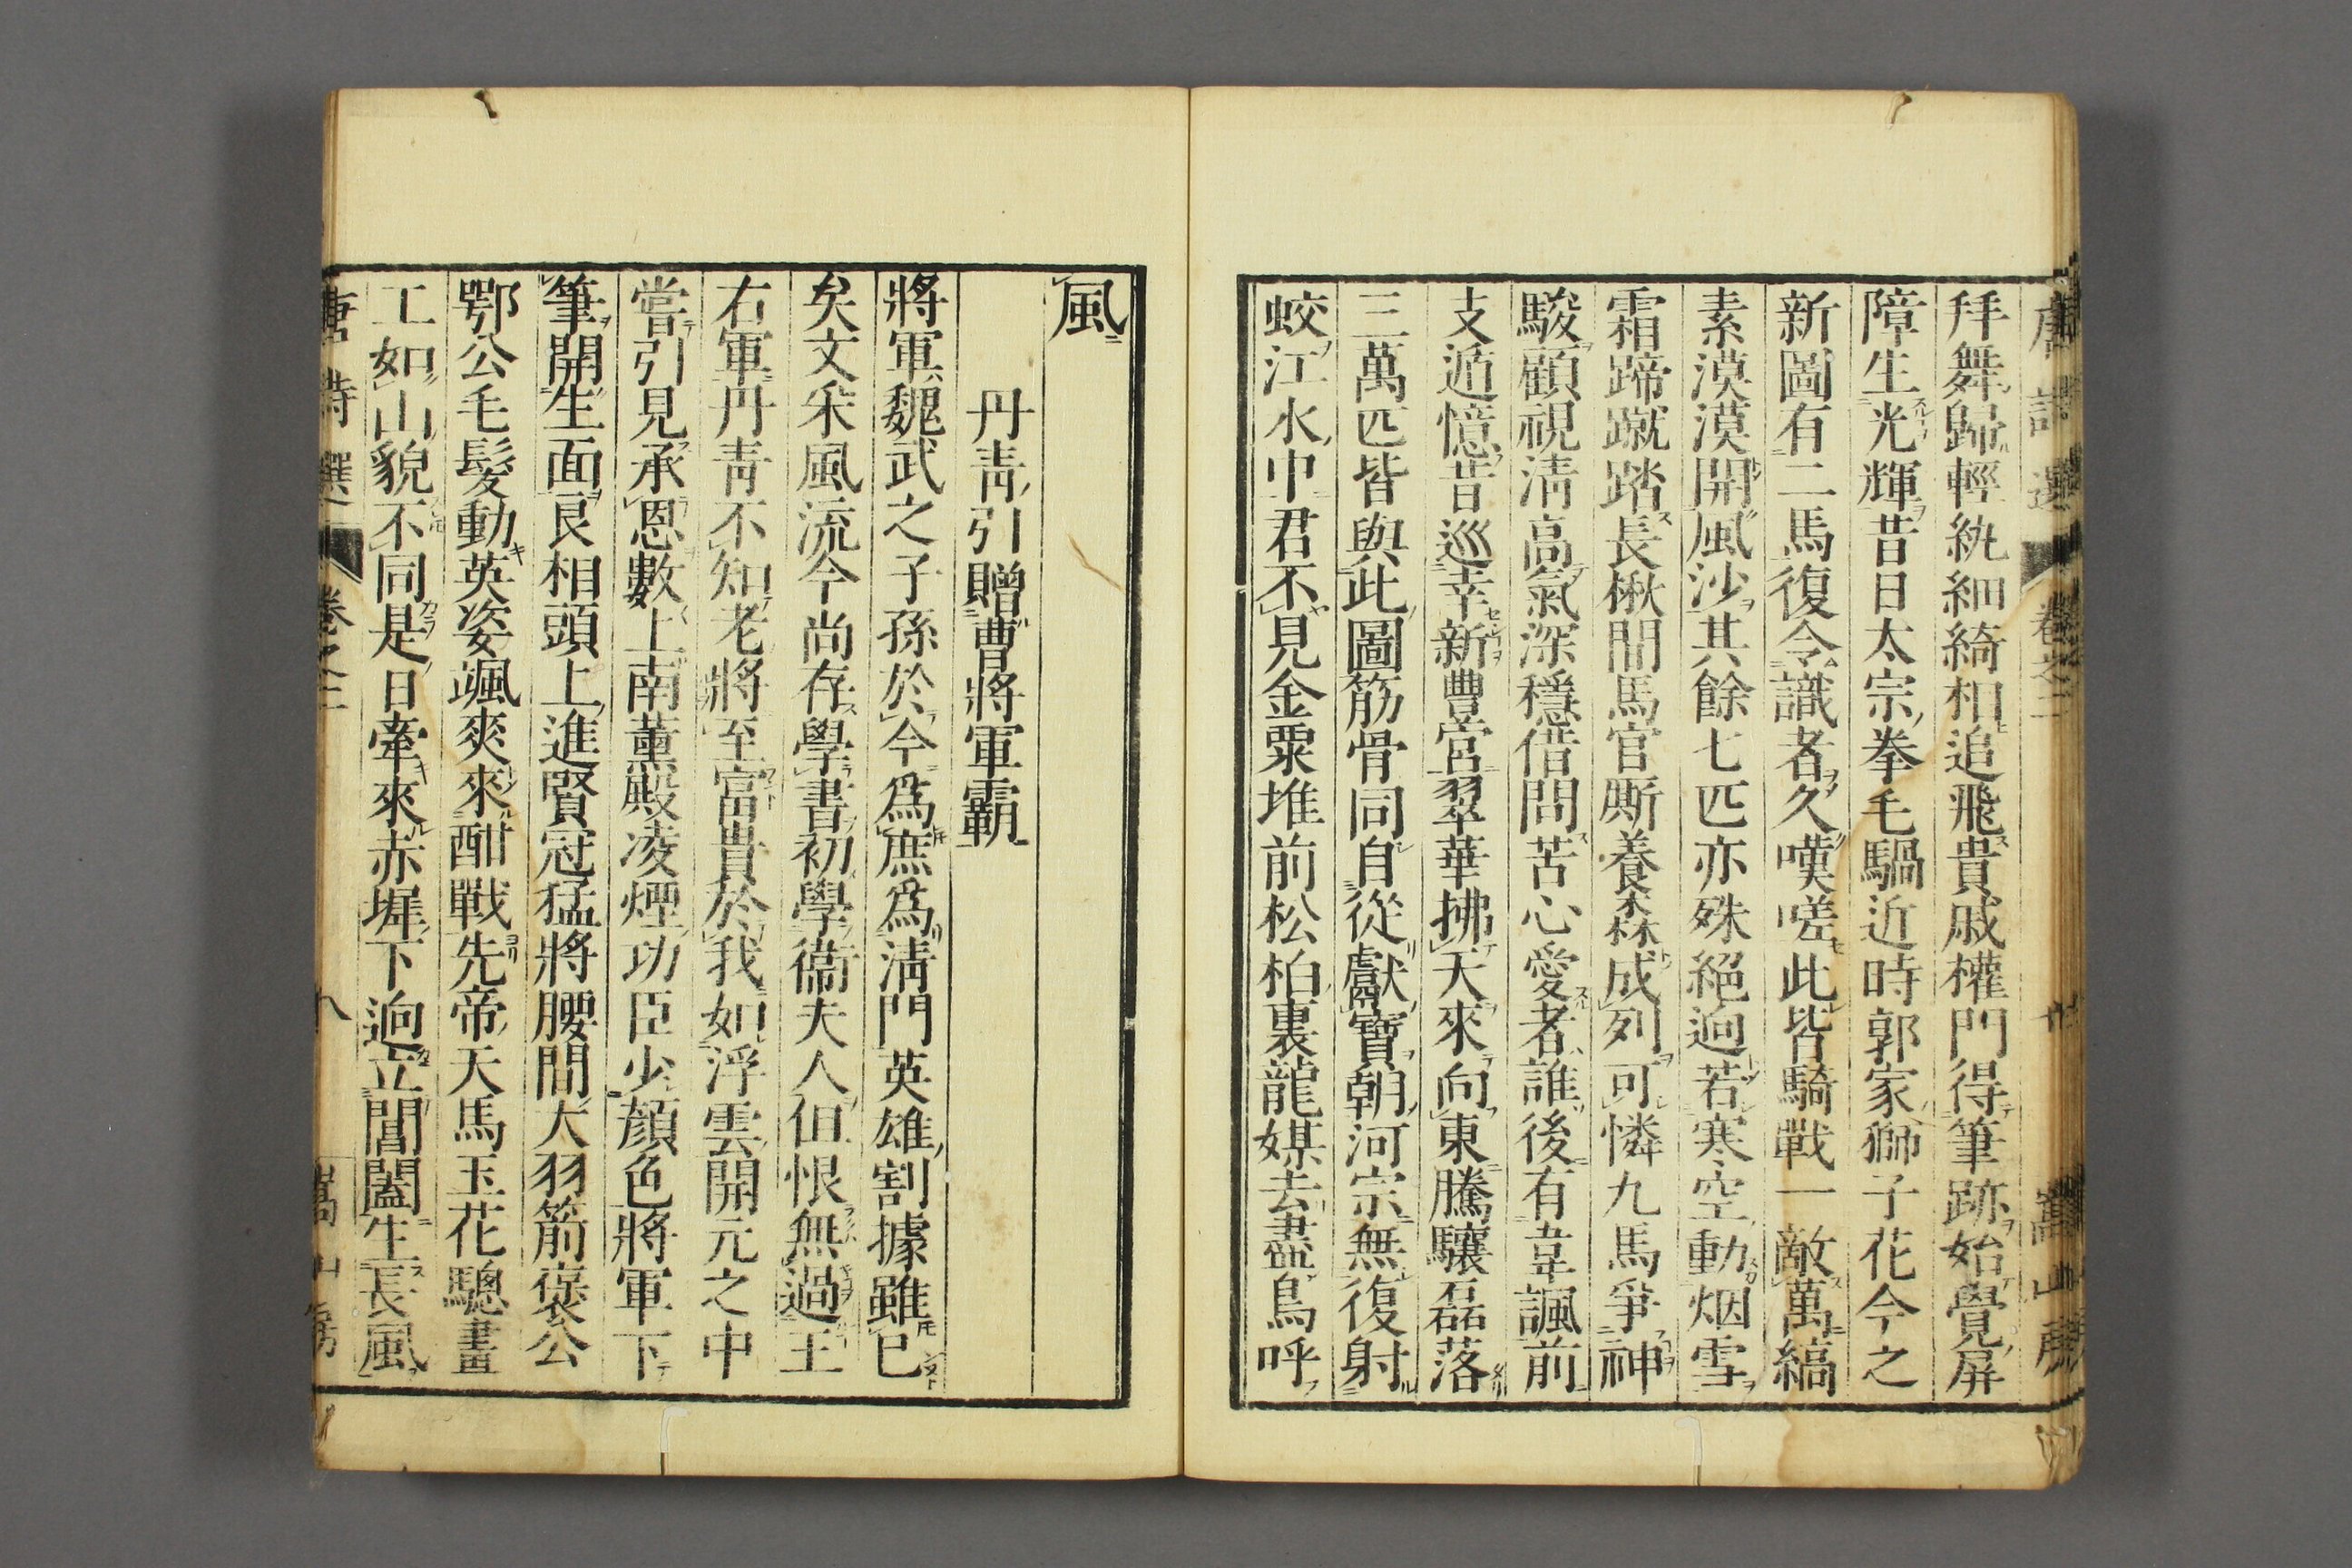 唐詩選 卷之二 嵩山房
拜舞歸輕紈細綺相追飛貴戚權門得筆跡始覺屏
障生光輝昔日太宗拳毛騧近時郭家獅子花今之
新圖有二馬復令識者久嘆嗟此皆騎戰一敵萬縞
素漠漠開風沙其餘七匹亦殊絕迥若寒空動烟雪
霜蹄蹴踏長楸間馬官厮養森成列可憐九馬爭神
駿顧視清高氣深穩借問苦心愛者誰後有韋諷前
支遁憶昔巡幸新豐宮翠華拂天來向東騰驤磊落
三萬匹皆與此圖筋骨同自從獻寶朝河宗無復射
蛟江水中君不見金粟堆前松柏裏龍媒去盡鳥呼
風
丹青引贈曹將軍霸
將軍魏武之子孫於今爲庶爲清門英雄割據雖已
矣文采風流今尚存學書初學衞夫人但恨無過王
右軍丹青不知老將至富貴於我如浮雲開元之中
嘗引見承恩數上南薰殿凌煙功臣少顏色將軍下
筆開生面良相頭上進賢冠猛將腰間大羽箭褒公
鄂公毛髮動英姿颯爽來酣戰先帝天馬玉花驄畫
工如山貌不同是日牽來赤墀下迥立閶闔生長風
唐詩選 卷之二 八 嵩山房